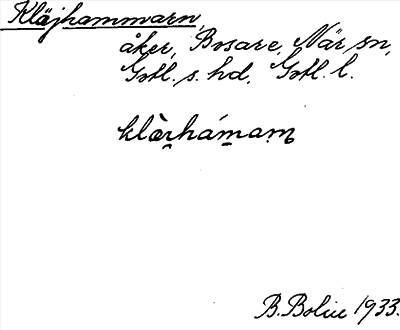 Kläjhammarn,
åker, Bosare, När sn,
Gotl. s. hd, Gotl. l.
klärhámam
B. Bolin 1933.